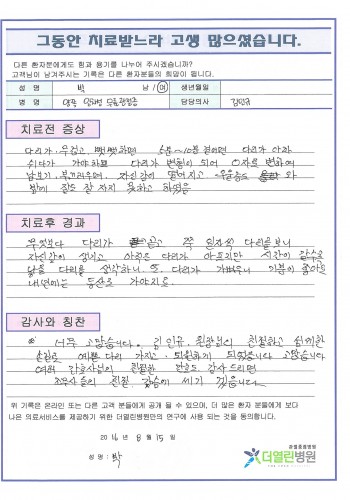 그동안 치료받느라 고생 많으셨습니다.
다른 환자분에게도 힘과 용기를 나누어 주시겠습니까?
고객님이 남겨주시는 기록은 다른 환자분들의 희망이 됩니다.
성 명 박 남 / 여 생년월일
병 명 양쪽 퇴행성 무릎관절증 담당의사 김민규
치료전 증상
다리가 무겁고 뻣뻣하면 5분~10분 걸어면 다리가 아파
쉬다가 가야하고 다리가 변형이 되어 O자로 변하여
남보기 부끄러우며, 자신감이 떨어지고 우울증도 와
밤에 잠도 잘 자지 못하고 하였음
치료후 경과
무엇보다 다리가 곧고 쭉 된 다리를 보니
자신감이 생기고 아직은 다리가 아프지만 시간이 갈수록
낳을 다리를 생각하니 또 다리가 가벼우니 기분이 좋아요
내년에는 등산도 가야지요.
감사와 칭찬
너무 고맙습니다. 김민규 원장님의 친절하고 섬세한
손길로 예쁜 다리 가지고 퇴원하게 되었습니다 고맙습니다
여러 간호사님의 친절한 간호도 감사드리면
조무사들의 친절 가슴에 새기 겠습니다
위 기록은 온라인 또는 다른 고객 분들에게 공개 될 수 있으며, 더 많은 환자 분들에게 보다
나은 의료서비스를 제공하기 위한 더열린병원만의 연구에 사용 되는 것을 동의합니다.
2016 년 8 월 15 일
성 명 : 박
관절종합병원
더열린병원